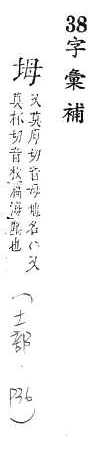 38字彙補
坶 又莫厚切音母地名〇又
莫杯切音枚〔篇海〕塵也
(土部.P36)